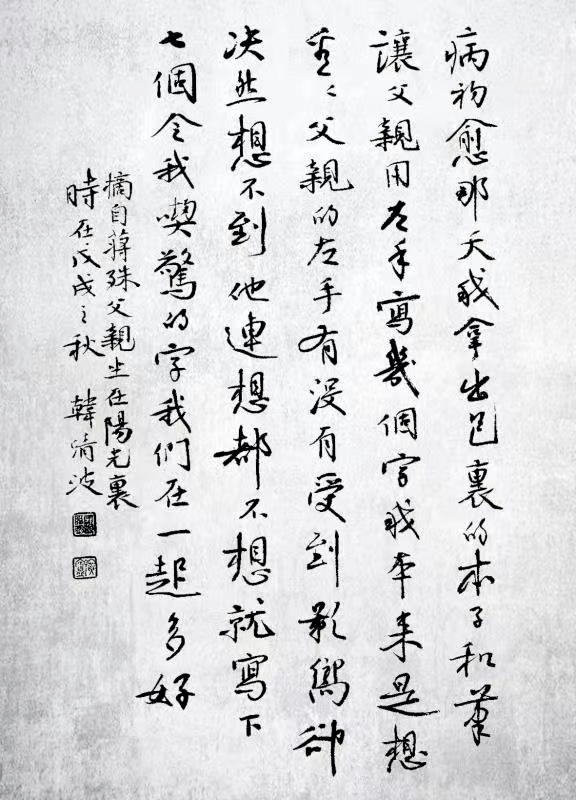 病初愈那天我拿出包裏的本子和筆
讓父親用左手寫幾個字我本来是想
看看父親的左手有没有受到影響卻
决然想不到他連想都不想就寫下
七個令我喫驚的字我们在一起多好
摘自蒋殊父親坐在陽光裏
時在戊戌之秋 韓清波